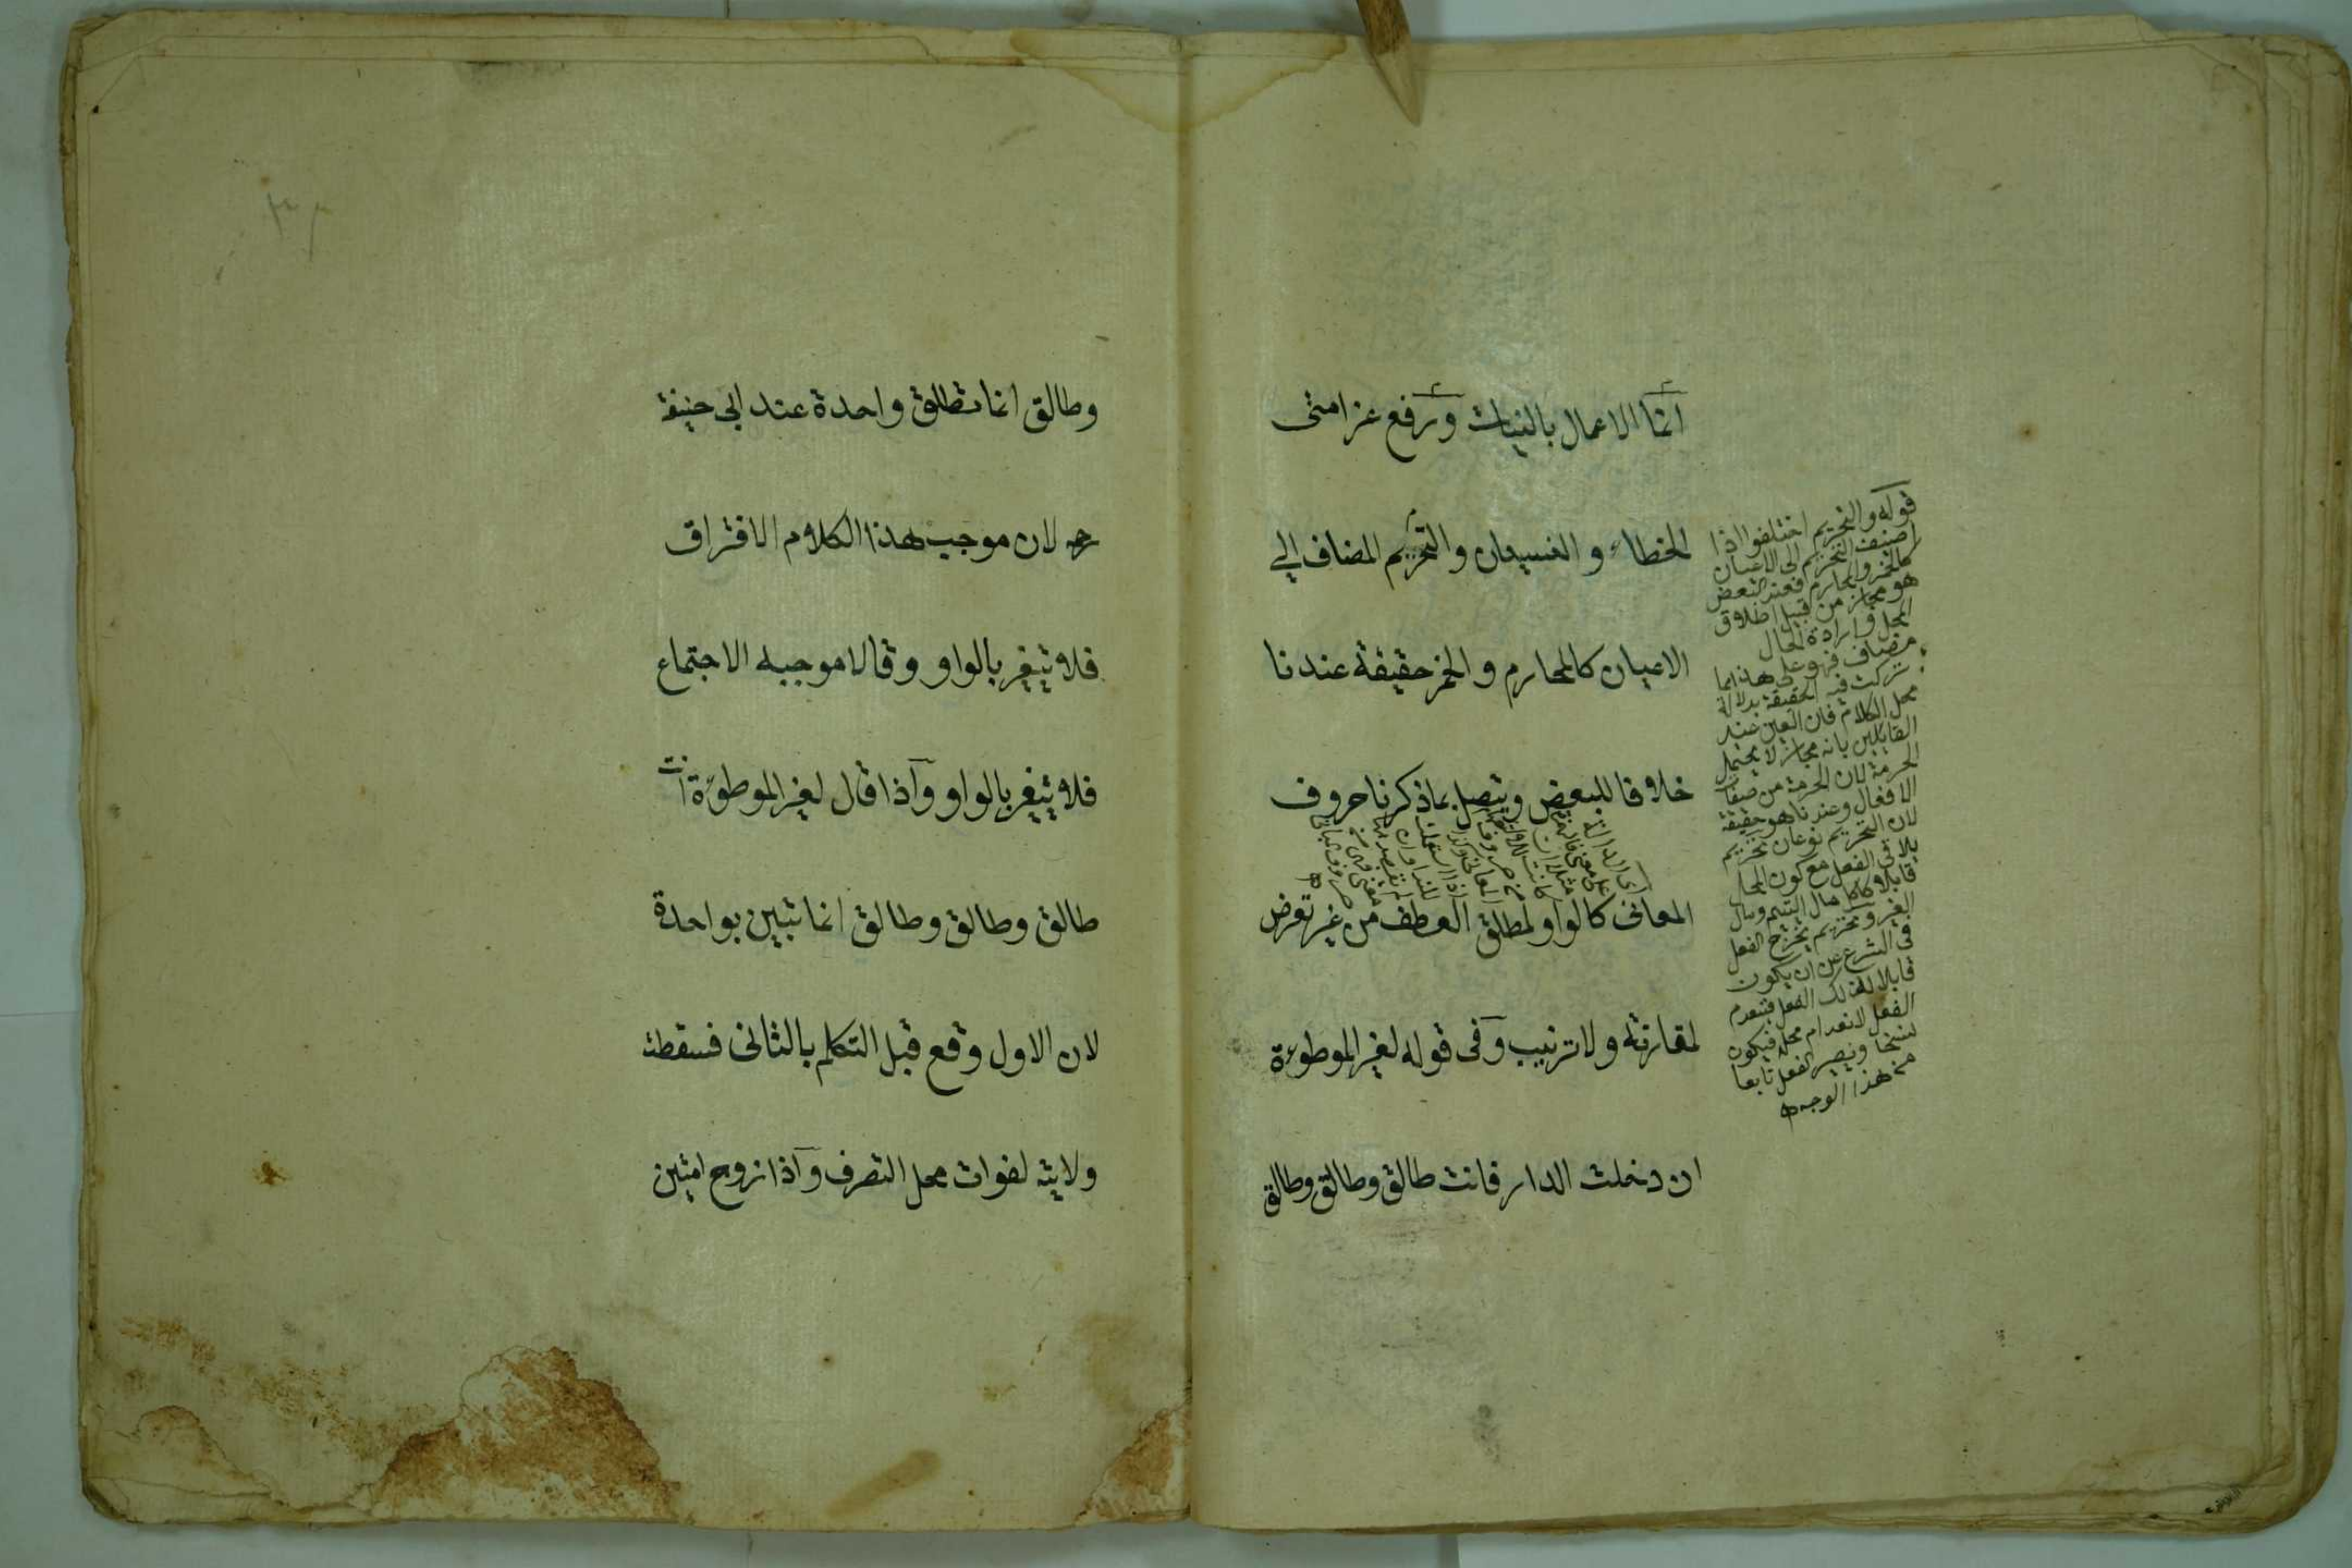 انما الاعمال بالنيات ورفع عن امتى
الخطاء و النسيان والتحريم المضاف الى
الاعيان كالمحارم و الخمر حقيقة عندنا
خلافا للبعض ويتصل بما ذكرنا حروف
المعانى كالواو لمطلق العطف من غير تعرض
لمقارنة ولا ترتيب وفى قوله لغير الموطوءة
ان دخلت الدار فانت طالق وطالق وطالق
قوله والتحريم اختلفوا اذا
اضيف التحريم الى الاعيان
كالخمر والمحارم فعند البعض
هو مجاز من قبيل اطلاق
المحل و ارادة الحال
مضاف فهو على هذا مما
تركت فيه الحقيقة بدلالة
محل الكلام فان العين عند
القايلين بانه مجاز لا يحتمل
الحرمة لان الحرمة من صفات
الافعال وعندنا هو حقيقة
لان التحريم نوعان تحريم
يلاقى الفعل مع كون المحل
قابلا كاكل مال اليتيم ومال
الغير وتحريم يخرج الفعل
فى الشرع عن ان يكون
قابلا لذلك الفعل فينعدم
الفعل لانعدام محله فيكون
نسخا ويصير الفعل تابعا
من هذا الوجه
وطالق انما تطلق واحدة عند ابى حنيفة
رحه لان موجب هذا الكلام الافتراق
فلا يتغير بالواو وقالا موجبه الاجتماع
فلا يتغير بالواو واذا قال لغير الموطوءة انت
طالق وطالق وطالق انما تبين بواحدة
لان الاول وقع قبل التكلم بالثانى فسقطت
ولايته لفوات محل التصرف واذا زوج امتين